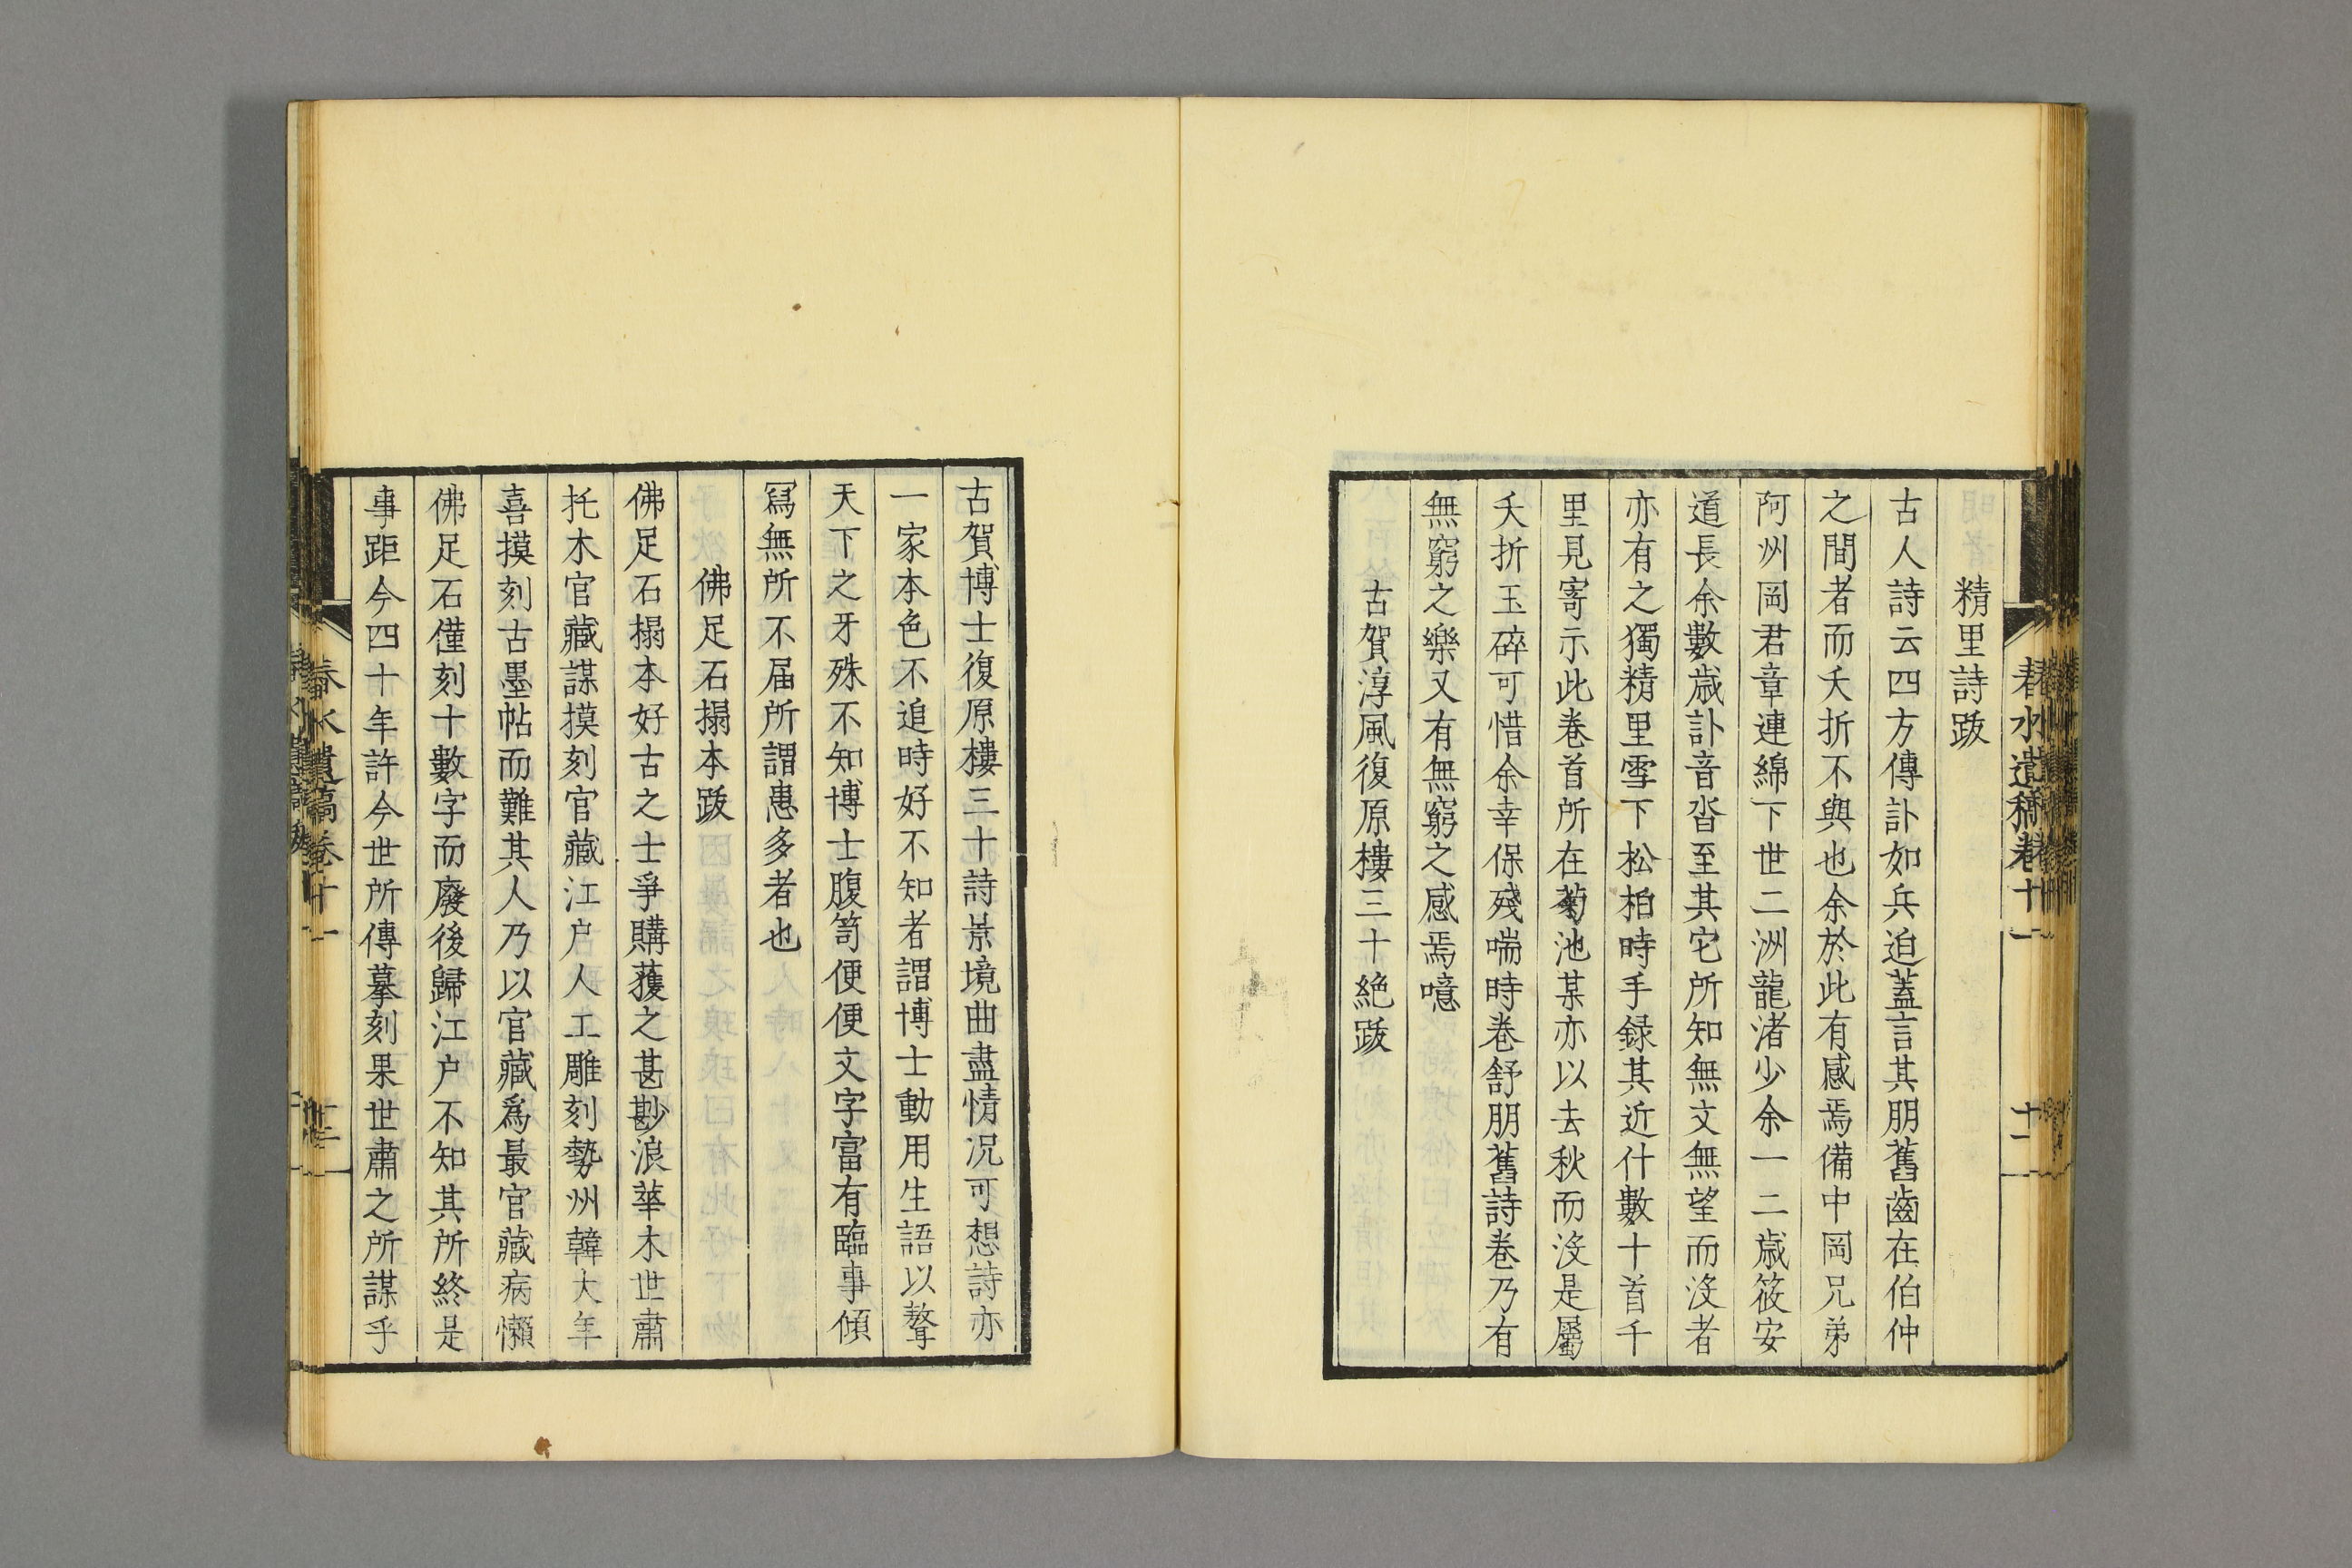 春水遺稿卷十一
十一
精里詩跋
古人詩云四方傳訃如兵迫蓋言其朋舊齒在伯仲
之間者而夭折不與也余於此有感焉備中岡兄弟
阿州岡君章連綿下世二洲龍渚少余一二歲筱安
道長余數歲訃音沓至其它所知無文無望而沒者
亦有之獨精里雪下松柏時手錄其近什數十首千
里見寄示此卷首所在菊池某亦以去秋而沒是屬
夭折玉碎可惜余幸保殘喘時卷舒朋舊詩卷乃有
無窮之樂又有無窮之感焉噫
古賀淳風復原樓三十絶跋
古賀博士復原樓三十詩景境曲盡情况可想詩亦
一家本色不追時好不知者謂博士動用生語以聱
天下之牙殊不知博士腹笥便便文字富有臨事傾
寫無所不届所謂患多者也
佛足石搨本跋
佛足石搨本好古之士爭購獲之甚尠浪華木世肅
托木官藏謀摸刻官藏江戶人工雕刻勢州韓大年
喜摸刻古墨帖而難其人乃以官藏爲最官藏病懶
佛足石僅刻十數字而廢後歸江戶不知其所終是
事距今四十年許今世所傳摹刻果世肅之所謀乎
春水遺稿卷十一